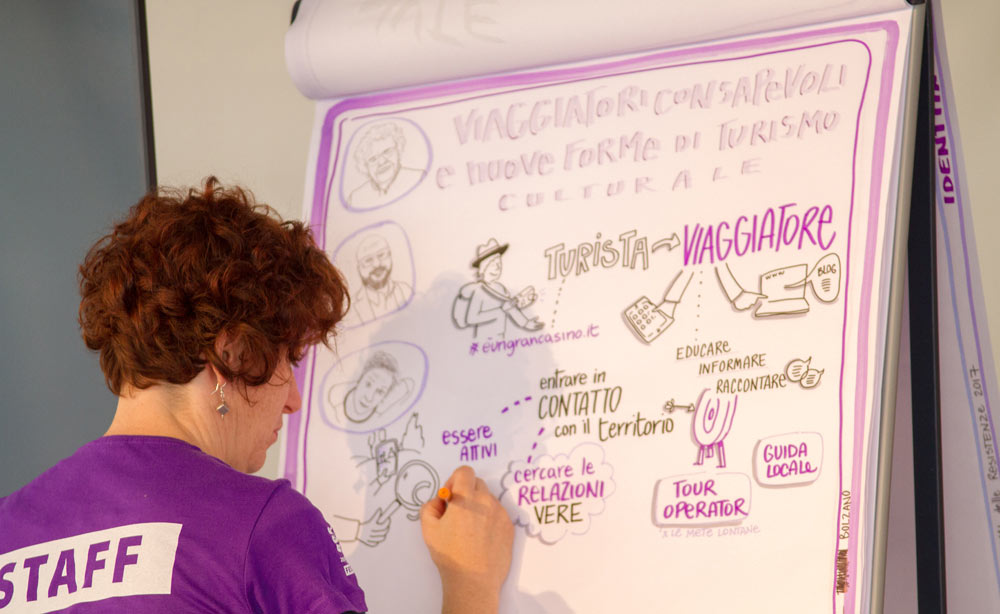 VIAGGIATORI CONSAPEVOLI
e nuove forme di turismo
culturale
TURISTA → VIAGGIATORE
WWW
BLOG
#eungrancasino.it
EDUCARE
INFORMARE
RACCONTARE
entrare in
CONTATTO
con il territorio
essere
ATTIVI
cercare le
RELAZIONI
VERE
TOUR
OPERATOR
X LE METE LONTANE
GUIDA
LOCALE
BOLZANO
STAFF
IDENTITÀ
RESISTENZE 2017